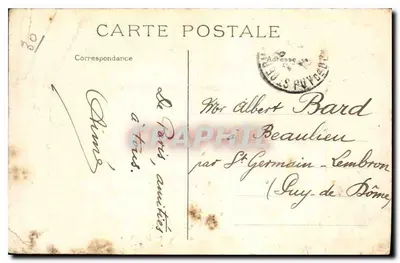 20
CARTE POSTALE
Correspondance
Adresse
De Paris, amitiés
à tous.
Aimé
Mr Albert Bard
à Beaulieu
par St Germain-Lembron
(Puy-de-Dôme)
PUY-DE-D